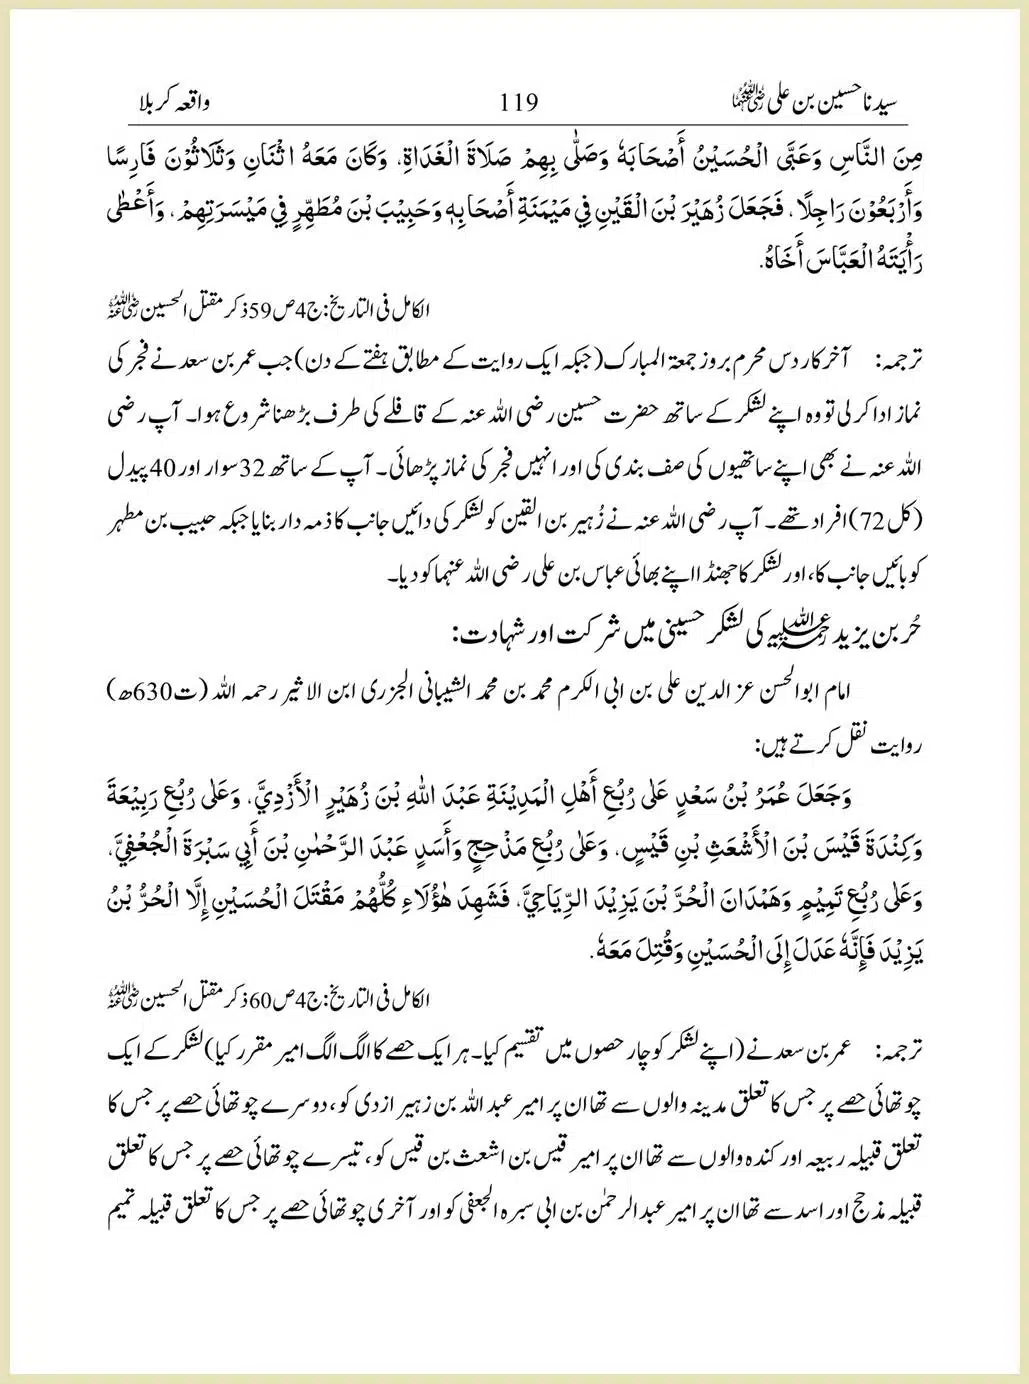 سیدنا حسین بن علی رضی اللہ عنہما 119 واقعہ کربلا
مِنَ النَّاسِ وَعَبَّى الْحُسَيْنُ أَصْحَابَهٗ وَصَلّٰى بِهِمْ صَلَاةَ الْغَدَاةِ، وَكَانَ مَعَهُ اثْنَانِ وَثَلَاثُوْنَ فَارِسًا
وَأَرْبَعُوْنَ رَاجِلًا، فَجَعَلَ زُهَيْرَ بْنَ الْقَيْنِ فِي مَيْمَنَةِ أَصْحَابِهٖ وَحَبِيْبَ بْنَ مُطَهِّرٍ فِي مَيْسَرَتِهِمْ، وَأَعْطٰى
رَأْيَتَهُ الْعَبَّاسَ أَخَاهُ.
الکامل فی التاریخ: ج4 ص59 ذکر مقتل الحسین رضی اللہ عنہ
ترجمہ: آخر کار دس محرم بروز جمعۃ المبارک (جبکہ ایک روایت کے مطابق ہفتے کے دن) جب عمر بن سعد نے فجر کی
نماز ادا کر لی تو وہ اپنے لشکر کے ساتھ حضرت حسین رضی اللہ عنہ کے قافلے کی طرف بڑھنا شروع ہوا۔ آپ رضی
اللہ عنہ نے بھی اپنے ساتھیوں کی صف بندی کی اور انہیں فجر کی نماز پڑھائی۔ آپ کے ساتھ 32 سوار اور 40 پیدل
(کل 72) افراد تھے۔ آپ رضی اللہ عنہ نے زُہیر بن القین کو لشکر کی دائیں جانب کا ذمہ دار بنایا جبکہ حبیب بن مطہر
کو بائیں جانب کا، اور لشکر کا جھنڈا اپنے بھائی عباس بن علی رضی اللہ عنہما کو دیا۔
حُر بن یزید رحمۃ اللہ علیہ کی لشکر حسینی میں شرکت اور شہادت:
امام ابوالحسن عز الدین علی بن ابی الکرم محمد بن محمد الشیبانی الجزری ابن الاثیر رحمہ اللہ (ت630ھ)
روایت نقل کرتے ہیں:
وَجَعَلَ عُمَرُ بْنُ سَعْدٍ عَلٰى رُبُعِ أَهْلِ الْمَدِيْنَةِ عَبْدَ اللّٰهِ بْنَ زُهَيْرٍ الْأَزْدِيَّ، وَعَلٰى رُبُعِ رَبِيْعَةَ
وَكِنْدَةَ قَيْسَ بْنَ الْأَشْعَثِ بْنِ قَيْسٍ، وَعَلٰى رُبُعِ مَذْحِجٍ وَأَسَدٍ عَبْدَ الرَّحْمٰنِ بْنَ أَبِي سَبْرَةَ الْجُعْفِيَّ،
وَعَلٰى رُبُعِ تَمِيْمٍ وَهَمْدَانَ الْحُرَّ بْنَ يَزِيْدَ الرِّيَاحِيَّ، فَشَهِدَ هٰؤُلَاءِ كُلُّهُمْ مَقْتَلَ الْحُسَيْنِ إِلَّا الْحُرُّ بْنُ
يَزِيْدَ فَإِنَّهٗ عَدَلَ إِلَى الْحُسَيْنِ وَقُتِلَ مَعَهٗ.
الکامل فی التاریخ: ج4 ص60 ذکر مقتل الحسین رضی اللہ عنہ
ترجمہ: عمر بن سعد نے (اپنے لشکر کو چار حصوں میں تقسیم کیا۔ ہر ایک حصے کا الگ الگ امیر مقرر کیا) لشکر کے ایک
چوتھائی حصے پر جس کا تعلق مدینہ والوں سے تھا ان پر امیر عبد اللہ بن زہیر ازدی کو، دوسرے چوتھائی حصے پر جس کا
تعلق قبیلہ ربیعہ اور کندہ والوں سے تھا ان پر امیر قیس بن اشعث بن قیس کو، تیسرے چوتھائی حصے پر جس کا تعلق
قبیلہ مذحج اور اسد سے تھا ان پر امیر عبد الرحمٰن بن ابی سبرہ الجعفی کو اور آخری چوتھائی حصے پر جس کا تعلق قبیلہ تمیم